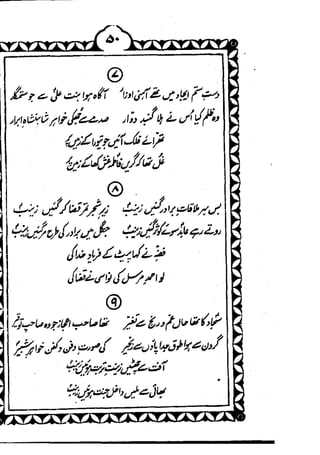 ۵۰
۷
دست ستم ایجاد میں تھے آہنی اوزار آگاہ ہوا بنت علیؑ سے جو ستمگار
وہ ظلم کیا اس نے ہلا گنبد دوّار صدمے سے جھکی خواہر شاہنشاہ ابرار
تھرائے فلک آئیں جو تیورا کے زمیں پر
غل تھا کہ گریں فاطمہؑ غش کھا کے زمیں پر
۸
بس بہر ملاقات برادر گئیں زینبؑ زیر شجر قضا کر گئیں زینبؑ
روتے رہے عابدؑ سوئے کوثر گئیں زینبؑ جنگل میں برادر کی طرح مر گئیں زینبؑ
فضہ نے کہا پیٹ کے فریاد خدا کی
لو احمد مرسلؐ کی نواسی نے قضا کی
۹
سجادؑ کا تھا حال غم و رنج سے تغییر تھا صاحب اعجاز جو وہ صاحب توقیر
گردن سے ہوا طوق جدا پاؤں سے زنجیر کی صورت دفن و کفن خواہر شبیرؑ
آفت سے چھٹیں زینت تربت ہوئیں زینبؑ
بھائی سے ملیں داخل جنت ہوئیں زینبؑ